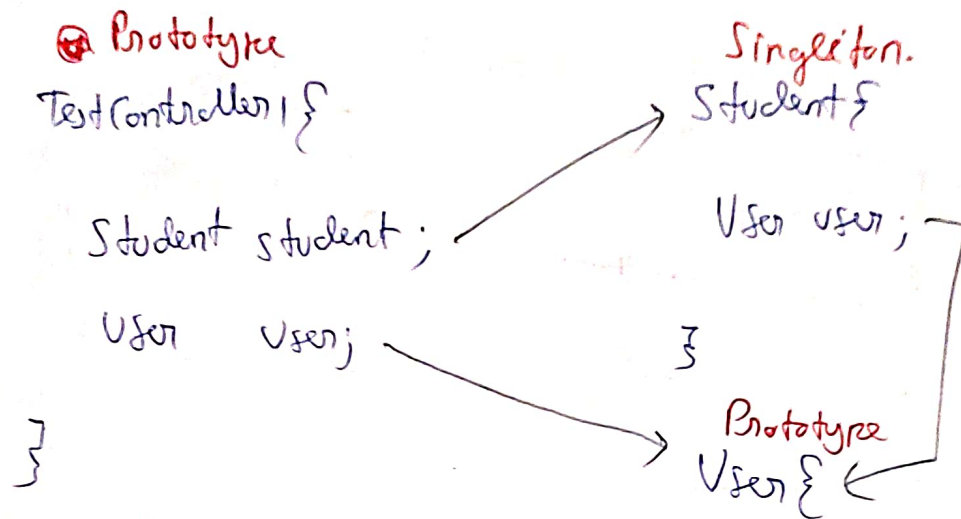 Prototype
TestController1{
Student student;
User user;
}
Singleton.
Student{
User user;
}
Prototype
User{